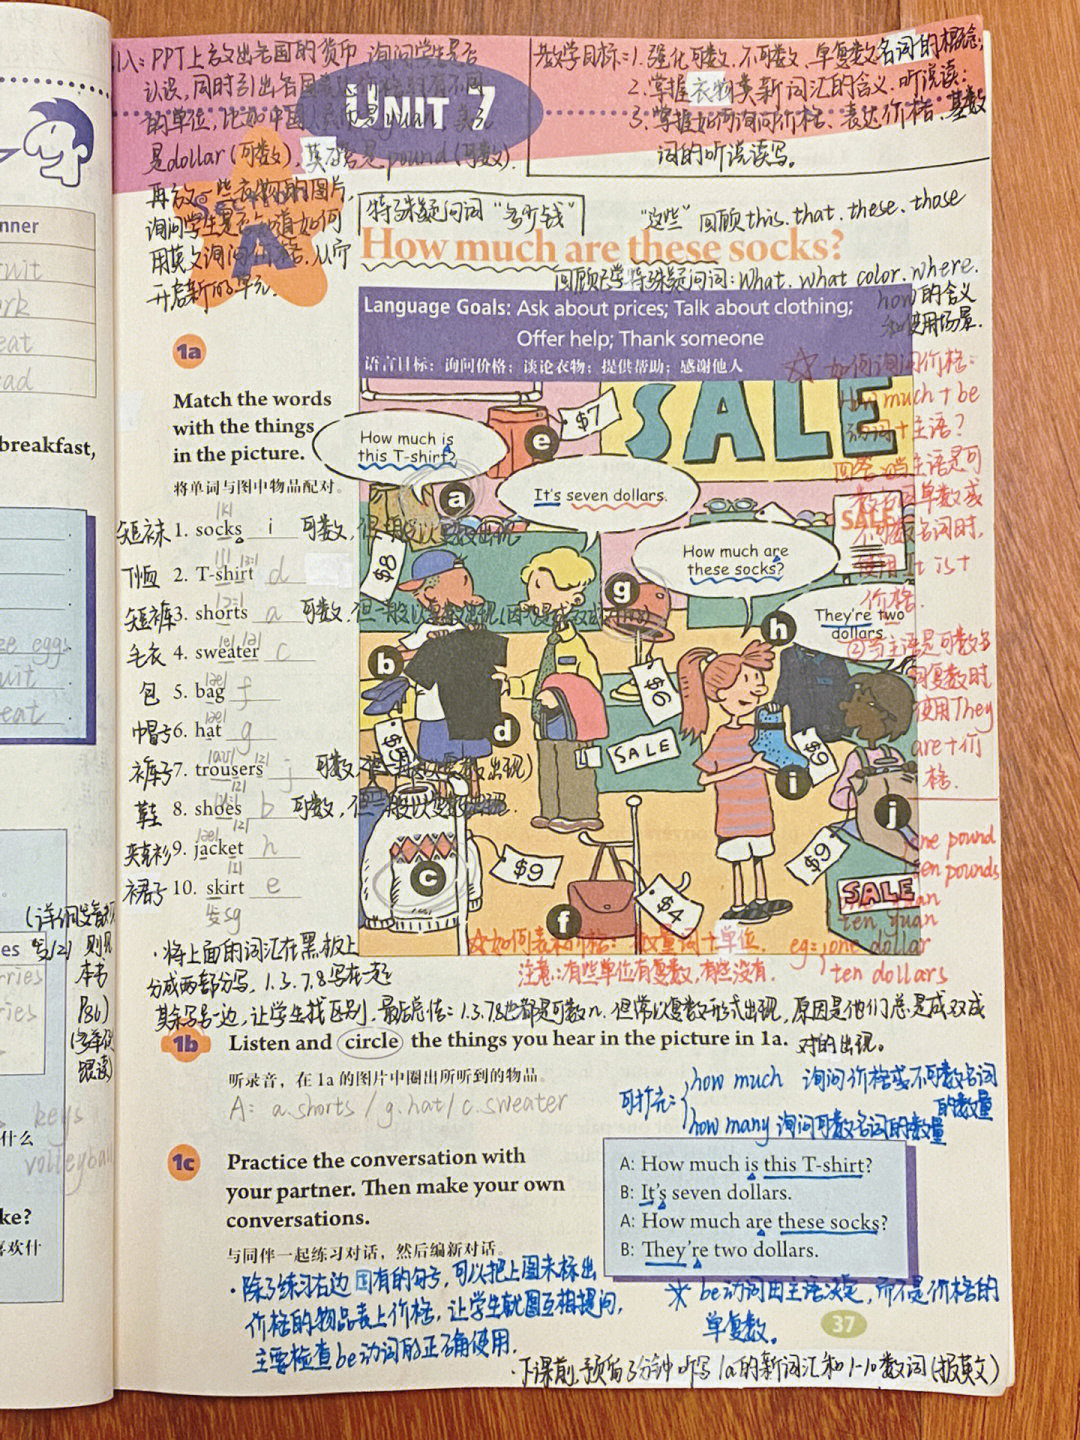 引入: PPT上放出各国的货币, 询问学生是否
认识, 同时引出各国表达价格时有不同
的单位, 比如中国人民币是yuan, 美元
是dollar(可数), 英镑是pound(可数).
再放一些衣物的图片,
询问学生是否知道如何
用英文询问价格. 从而
开启新的单元.
教学目标: 1. 强化可数、不可数、单复数名词的概念;
2. 掌握衣物类新词汇的含义、听说读;
3. 掌握如何询问价格、表达价格、基数
词的听说读写。
UNIT 7
Section
A
特殊疑问词 "多少钱"
"这些" 回顾this.that.these.those
How much are these socks?
回顾已学特殊疑问词: What. what color. where.
how的含义
和使用场景.
Language Goals: Ask about prices; Talk about clothing;
Offer help; Thank someone
语言目标: 询问价格; 谈论衣物; 提供帮助; 感谢他人
1a
Match the words
with the things
in the picture.
将单词与图中物品配对。
短袜 1. socks i 可数, 但一般以复数出现
T恤 2. T-shirt d
短裤 3. shorts a
毛衣 4. sweater c
包 5. bag f
帽子 6. hat g
裤子 7. trousers j
鞋 8. shoes b 可数, 但一般以复数出现.
夹克衫 9. jacket h
裙子 10. skirt e
发sg
SALE
$7
How much is
this T-shirt?
It's seven dollars.
How much are
these socks?
They're two
dollars.
SALE
a
b
c
d
e
f
g
h
i
j
$8
$6
SALE
$9
$9
$9
$4
SALE
☆ 如何询问价格:
How much + be
动词 + 主语?
回答: ①当主语是可
数名词单数或
不可数名词时,
使用It is +
价格.
②当主语是可数名
词复数时
使用They
are + 价
格.
one pound
ten pounds
yuan
ten yuan
☆如何表示价格: 数量词 + 单位. eg: one dollar
注意: 有些单位有复数, 有些没有. ten dollars
· 将上面的词汇在黑板上
分成两部分写, 1.3.7.8写在一起
其余写另一边, 让学生找区别, 最后总结: 1.3.7.8也都是可数n. 但常以复数形式出现, 原因是他们总是成双成
对的出现。
1b Listen and circle the things you hear in the picture in 1a.
听录音, 在 1a 的图片中圈出所听到的物品。
A: a.shorts / g.hat / c.sweater
可扩充: how much 询问价格或不可数名词
的数量
how many 询问可数名词的数量
1c Practice the conversation with
your partner. Then make your own
conversations.
与同伴一起练习对话, 然后编新对话。
A: How much is this T-shirt?
B: It's seven dollars.
A: How much are these socks?
B: They're two dollars.
· 除了练习右边固有的句子, 可以把上图未标出
价格的物品表上价格, 让学生就图互相提问,
主要检查be动词的正确使用.
☆ be动词由主语决定, 而不是价格的
单复数。
37
· 下课前, 预留3分钟听写1a的新词汇和1-10数词(报英文)
nner
ruit
eat
breakfast,
eat
ries
keys
什么
volleyball
ke?
喜欢什